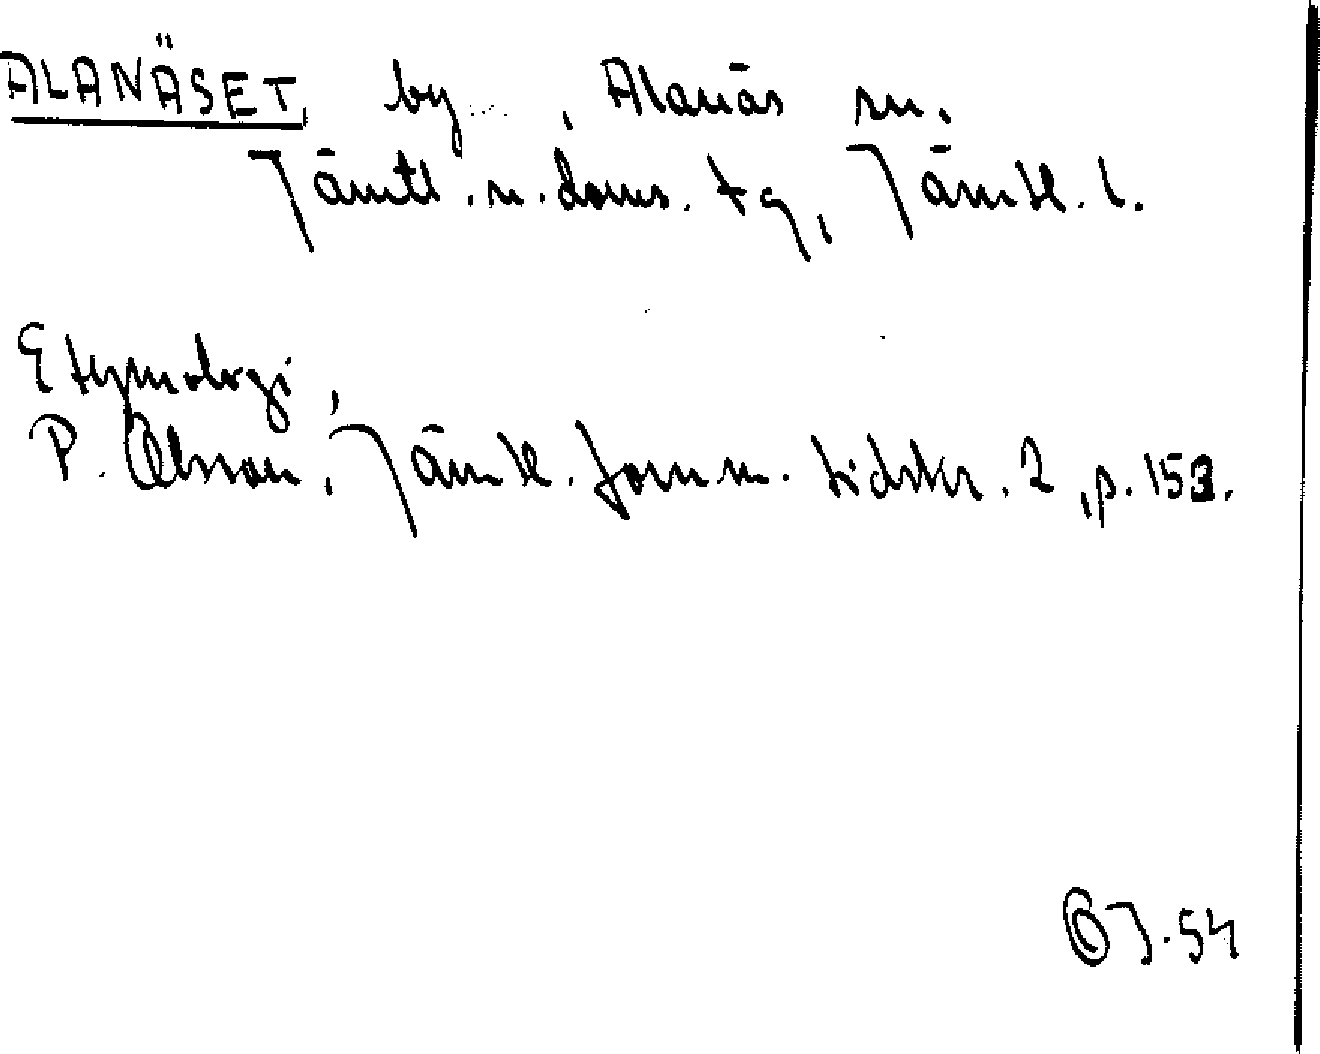 ALANÄSET, by, Alanäs sn.
Jämtl. n. doms. tg, Jämtl. l.
Etymologi,
P. Olsson, Jämtl. fornm. tidskr. 2, p. 153.
J. 54